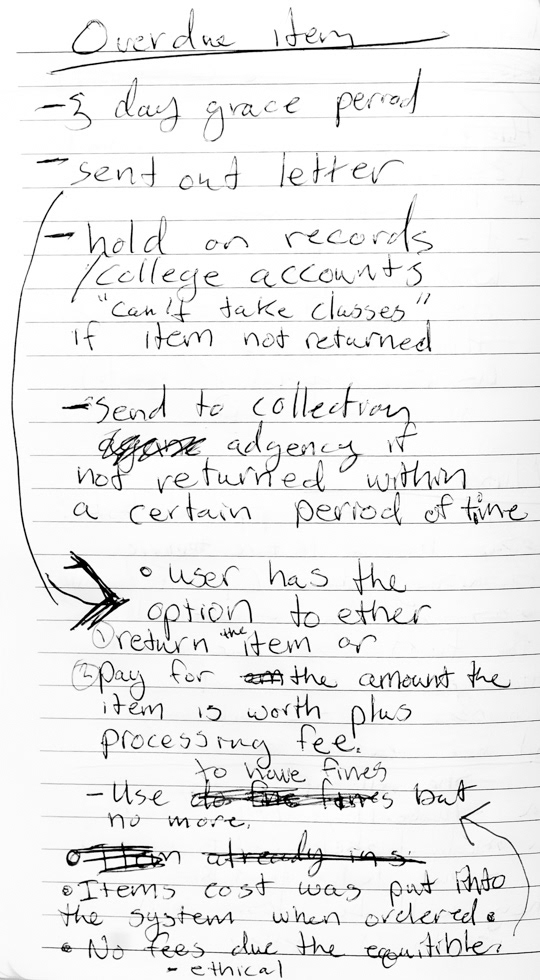 Overdue item
- 3 day grace period
- sent out letter
- hold on records
/college accounts
"can't take classes"
if item not returned
- send to collection
adgency if
not returned within
a certain period of time
• user has the
option to ether
① return the item or
② pay for the amount the
item is worth plus
processing fee.
to have fines
- Use but
no more.
• Item already in s
• Items cost was put into
the system when ordered.
• No fees due the equitible.
- ethical